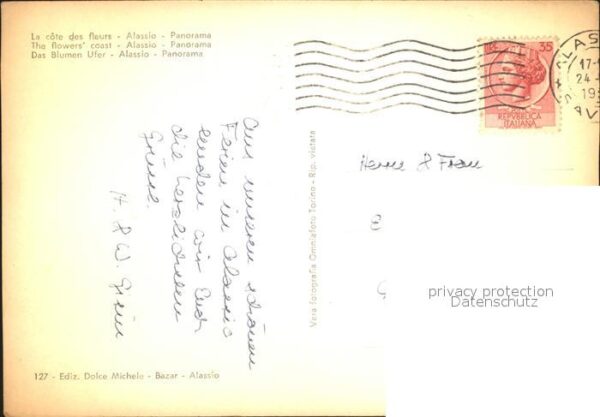 La côte des fleurs - Alassio - Panorama
The flowers' coast - Alassio - Panorama
Das Blumen Ufer - Alassio - Panorama
35
REPVBBLICA
ITALIANA
ALAS
17-
24-
19
SAV
Aus unseren schönen
Ferien in Alassio
senden wir Euch
die herzlichsten
Grüsse.
H. & W.
Herrn & Frau
Vera fotografia Omniafoto Torino - Rip. vietata
privacy protection
Datenschutz
127 - Ediz. Dolce Michele - Bazar - Alassio